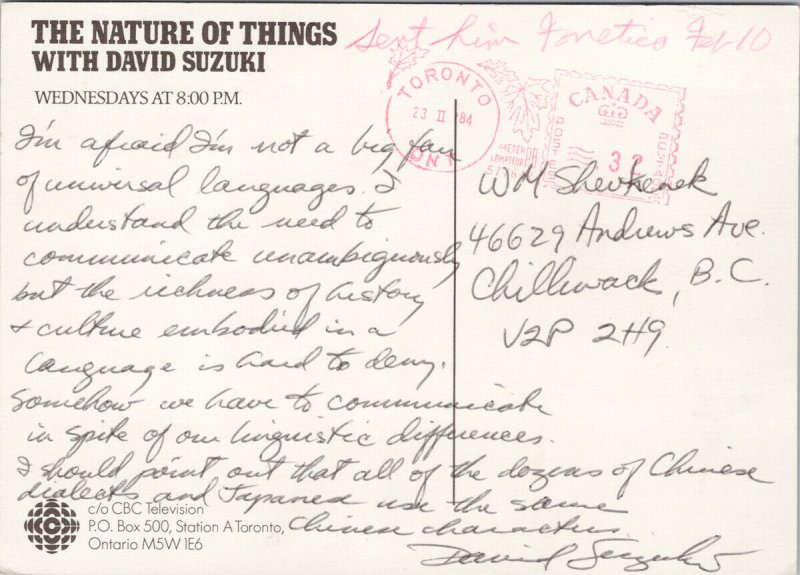 THE NATURE OF THINGS
WITH DAVID SUZUKI
WEDNESDAYS AT 8:00 P.M.
Sent him Fonetico Feb 10
TORONTO
23 II '84
ONT
CANADA
32
I'm afraid I'm not a big fan
of universal languages. I
understand the need to
communicate unambiguously
but the richness of history
+ culture embodied in a
language is hard to deny.
Somehow we have to communicate
in spite of our linguistic differences.
I should point out that all of the dozens of Chinese
dialects and Japanese use the same
Chinese characters
David Suzuki
WM Shevkenek
46629 Andrews Ave.
Chilliwack, B.C.
V2P 2H9
c/o CBC Television
P.O. Box 500, Station A Toronto,
Ontario M5W 1E6